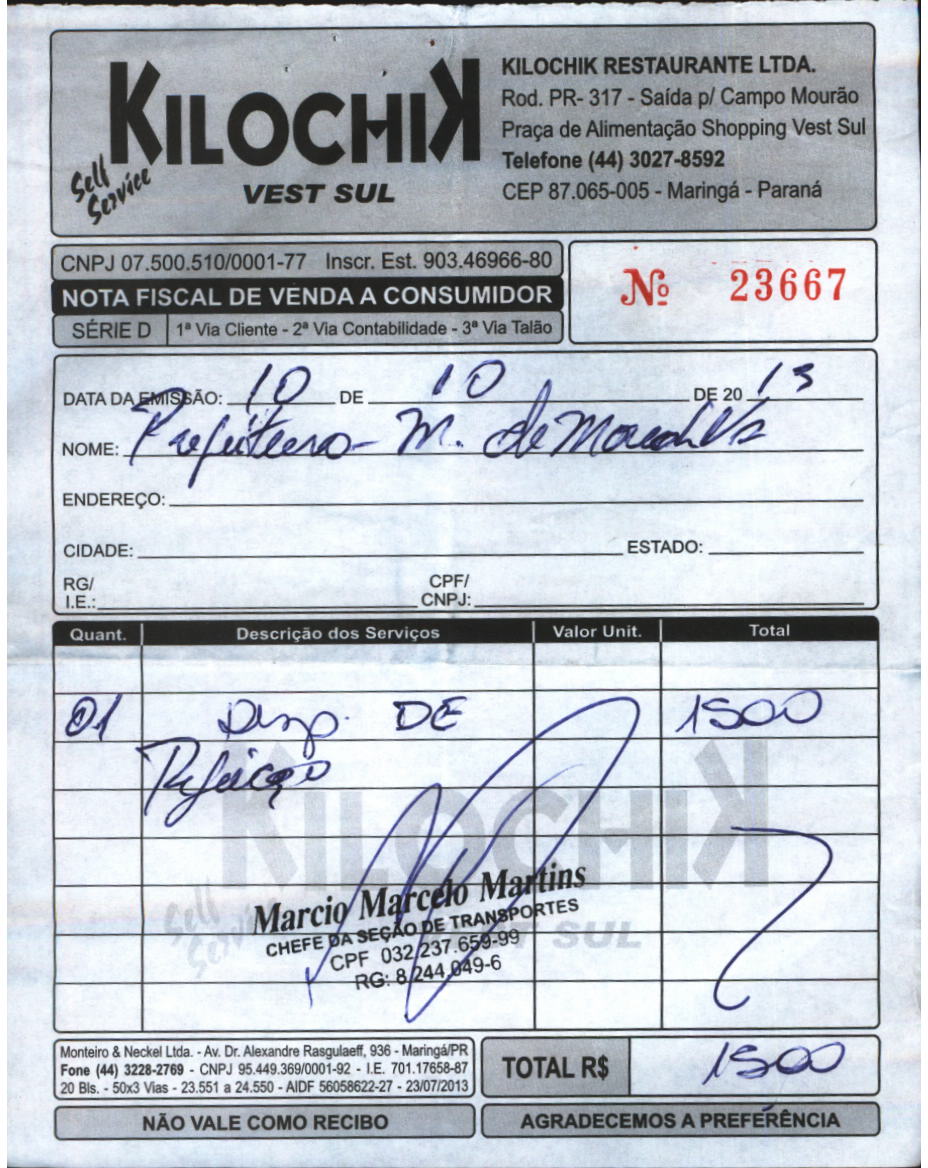 KILOCHIK
Self Service
VEST SUL
KILOCHIK RESTAURANTE LTDA.
Rod. PR- 317 - Saída p/ Campo Mourão
Praça de Alimentação Shopping Vest Sul
Telefone (44) 3027-8592
CEP 87.065-005 - Maringá - Paraná
CNPJ 07.500.510/0001-77 Inscr. Est. 903.46966-80
NOTA FISCAL DE VENDA A CONSUMIDOR
SÉRIE D 1ª Via Cliente - 2ª Via Contabilidade - 3ª Via Talão
Nº 23667
DATA DA EMISSÃO: 10 DE 10 DE 20 13
NOME: M. de
ENDEREÇO:
CIDADE: ESTADO:
RG/ I.E.: CPF/ CNPJ:
Quant. Descrição dos Serviços Valor Unit. Total
01 Desp. DE 1500
Refeição
KILOCHIK
Self Service
VEST SUL
Marcio Marcelo Martins
CHEFE DA SEÇÃO DE TRANSPORTES
CPF 032.237.659-99
RG: 8.244.049-6
Monteiro & Neckel Ltda. - Av. Dr. Alexandre Rasgulaeff, 936 - Maringá/PR
Fone (44) 3228-2769 - CNPJ 95.449.369/0001-92 - I.E. 701.17658-87
20 Bls. - 50x3 Vias - 23.551 a 24.550 - AIDF 56058622-27 - 23/07/2013
TOTAL R$ 1500
NÃO VALE COMO RECIBO
AGRADECEMOS A PREFERÊNCIA